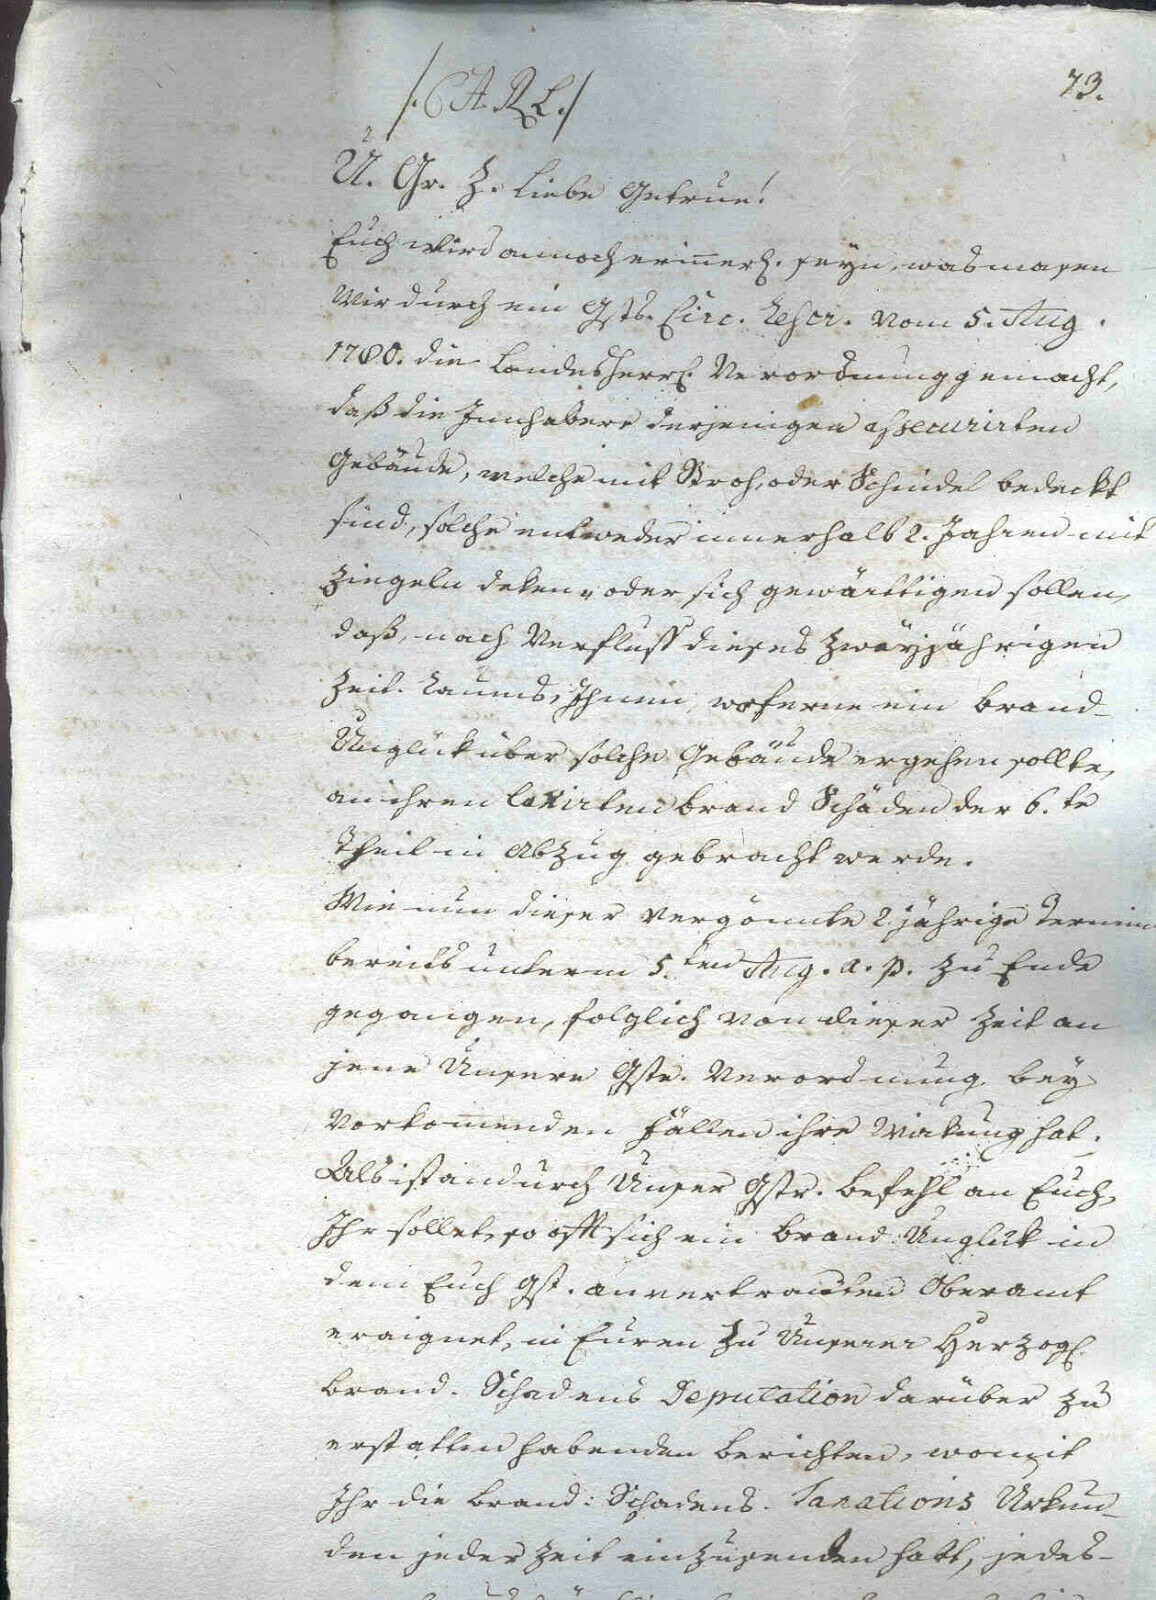 73.
/. CARL. /
U. Gr. Z. Liebe Getreue!
Euch wird annoch erinnerl. seyn, wasmasen
Wir durch ein Gstes. Circ. Rescr. vom 5. Aug.
1780. die Landesherrl. Verordnung gemacht,
daß die Innhabere derjenigen assecurirten
Gebäude, welche mit Stroh, oder Schindel bedeckt
sind, solche entweder innerhalb 2. Jahren mit
Ziegeln deken, oder sich gewärttigen sollen,
daß, nach Verfluss dieses zweyjährigen
Zeit-Raums, Ihnen, woferne ein Brand-
Unglück über solche Gebäude ergehen sollte,
an ihren taxirten Brand Schäden der 6.te
Theil in Abzug gebracht werde.
Wie nun dieser vergönnte 2 jährige Termin
bereits unterm 5.ten Aug. a. p. zu Ende
gegangen, folglich von dieser Zeit an
jene Unsere Gste. Verordnung bey
vorkomenden Fällen ihre Wirkung hat;
Als ist andurch Unser Gstr. Befehl an Euch,
Ihr sollet, so offt sich ein Brand: Unglük in
dem Euch gst. anvertrauten Oberamt
eraignet, in Euren zu Unserer Herzogl.
Brand-Schadens Deputation darüber zu
erstatten habenden Berichten, womit
Ihr die Brand: Schadens-Taxations Urkun-
den jeder Zeit einzusenden habt, jedes-